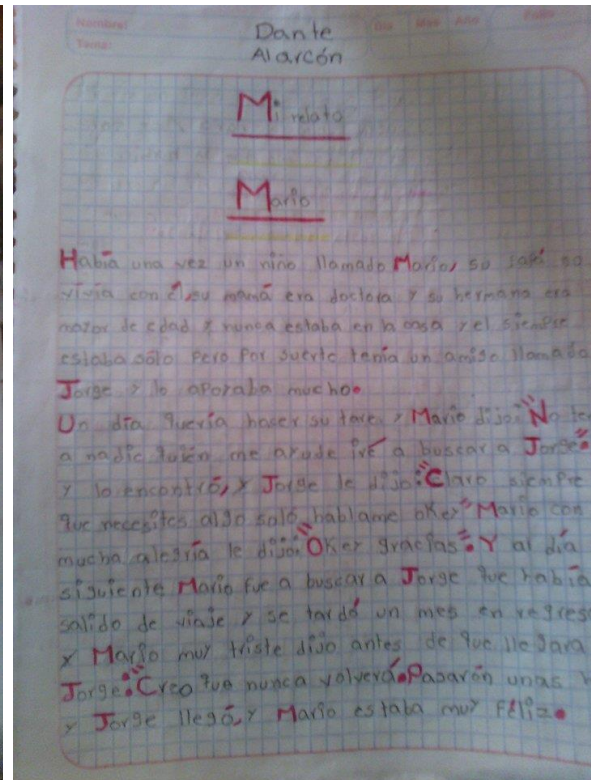 Nombre:
Día Mes Año Folio
Tema:
Dante
Alarcón
Mi relato
Mario
Había una vez un niño llamado Mario, su papá no
vivía con él, su mamá era doctora y su hermano era
mayor de edad y nunca estaba en la casa y el siempre
estaba sólo pero por suerte tenía un amigo llamado
Jorge y lo apoyaba mucho.
Un día quería hacer su tarea, y Mario dijo: "No te
a nadie quién me ayude iré a buscar a Jorge".
y lo encontró, y Jorge le dijo: "Claro siempre
que necesites algo soló hablame okey" Mario con
mucha alegría le dijo: "Okey gracias". Y al día
siguiente Mario fue a buscar a Jorge que había
salido de viaje y se tardó un mes en regres
y Mario muy triste dijo antes de que llegara
Jorge: "Creo que nunca volverá. Pasarón unas
y Jorge llegó, y Mario estaba muy feliz.